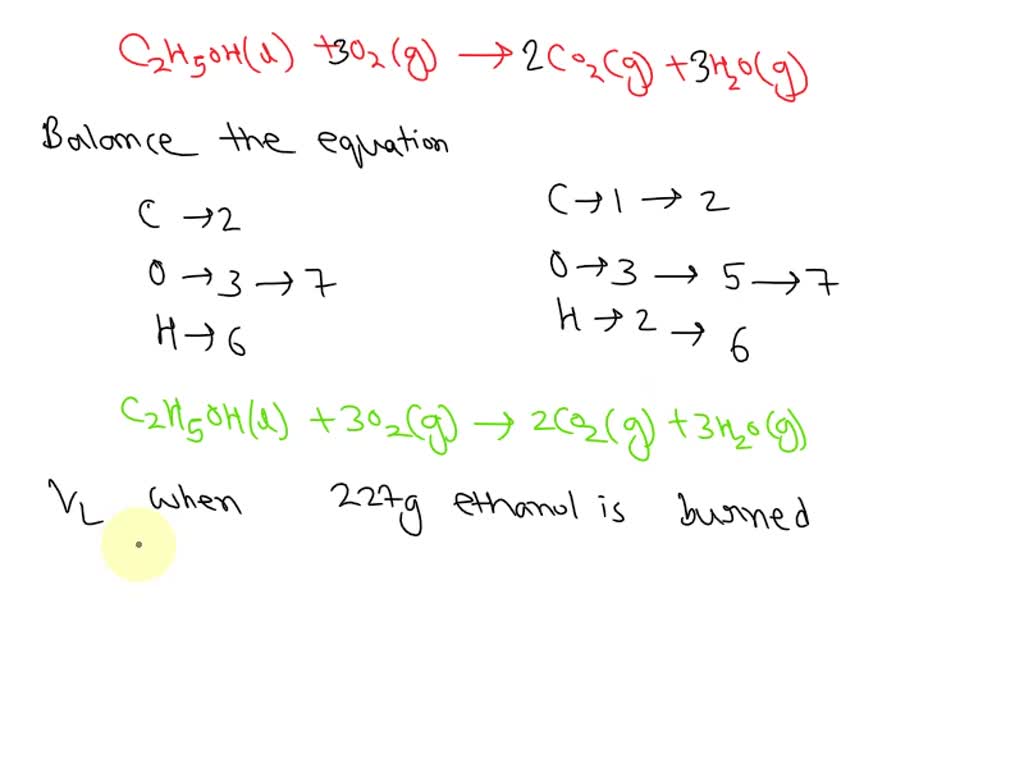 C₂H₅OH(l) +3O₂(g) → 2CO₂(g) +3H₂O(g)
Balance the equation
C → 2
O → 3 → 7
H → 6
C → 1 → 2
O → 3 → 5 → 7
H → 2 → 6
C₂H₅OH(l) +3O₂(g) → 2CO₂(g) +3H₂O(g)
V_L when 227g ethanol is burned